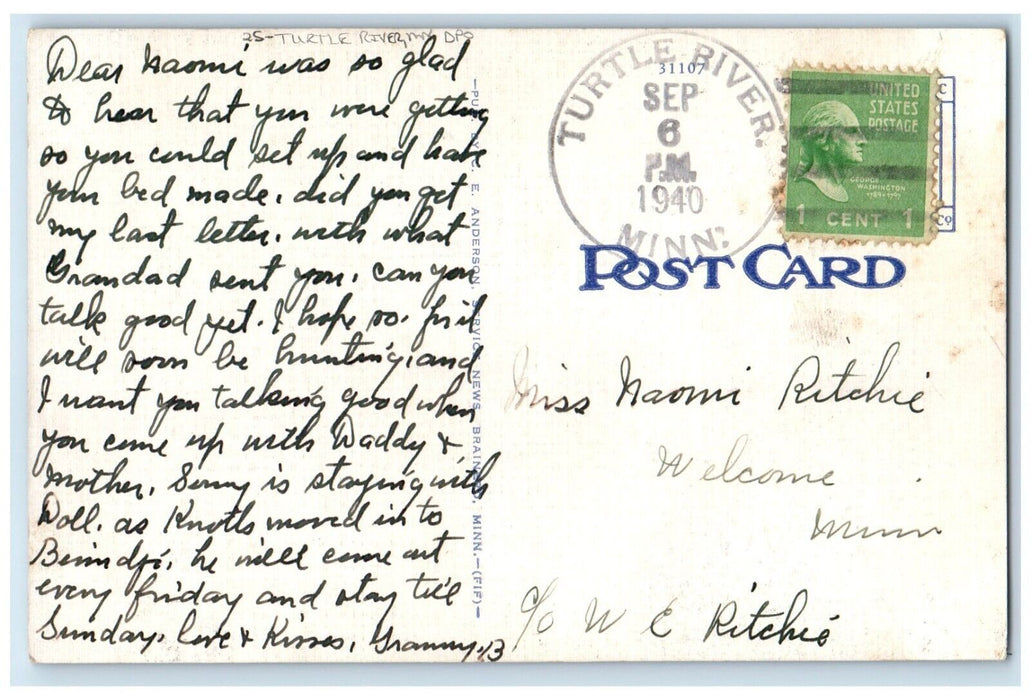 25-TURTLE RIVER, MN DPO
Dear Naomi was so glad
to hear that you were getting
so you could set up and have
your bed made. did you get
my last letter. with what
Grandad sent you. can you
talk good yet. I hope so. for it
will soon be hunting. and
I want you talking good when
you come up with Daddy &
Mother. Sonny is staying with
Doll. as Knotts moved in to
Bimdji. he will come out
every friday and stay till
Sunday. love & Kisses, Granny. B
E. ANDERSON SERVICE NEWS BRAINERD, MINN.—(FIF)—
TURTLE RIVER.
31107
SEP
6
P.M.
1940
MINN.
UNITED
STATES
POSTAGE
GEORGE
WASHINGTON
1789-1797
1 CENT 1
POST CARD
Miss Naomi Ritchie
Welcome
Minn
c/o W E Ritchie